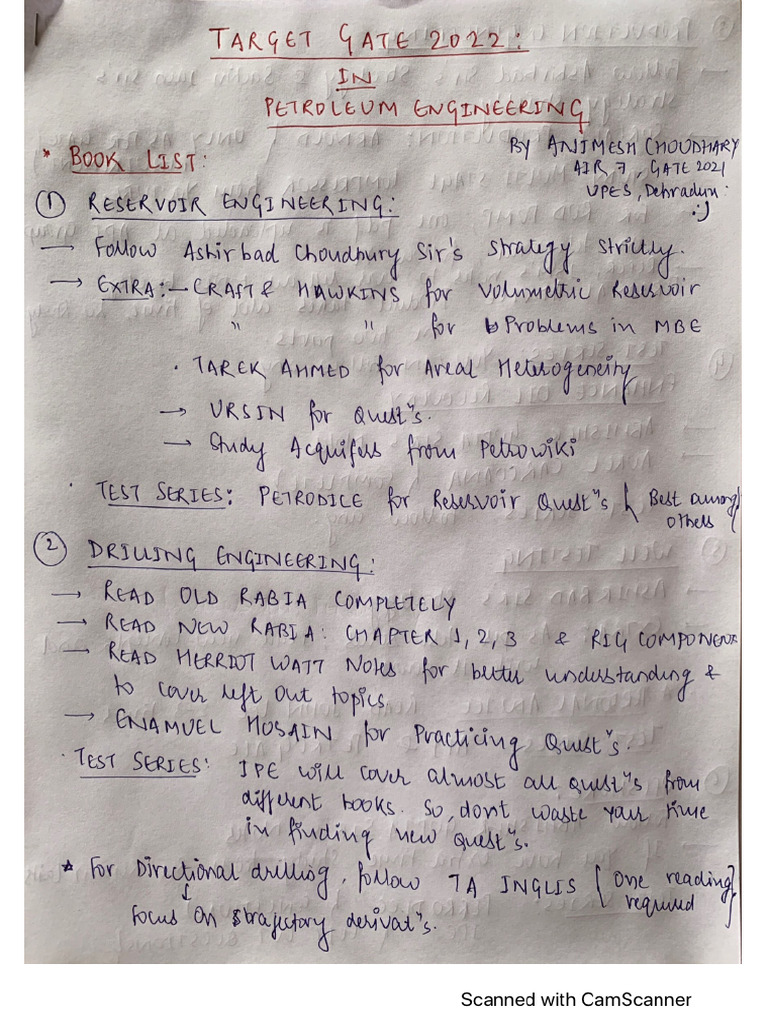 TARGET GATE 2022:
IN
PETROLEUM ENGINEERING
BY ANIMESH CHOUDHARY
AIR 7, GATE 2021
UPES, Dehradun
:)
* BOOK LIST:
① RESERVOIR ENGINEERING:
→ Follow Ashirbad Choudbury Sir's strategy strictly.
→ EXTRA:- CRAFT & HAWKINS for Volumetric Reservoir
" " for Problems in MBE
· TAREK AHMED for Areal Heterogeneity
→ URSIN for Quest"s.
→ Study Acquifers from Petrowiki
· TEST SERIES: PETRODICE for Reservoir Quest"s { Best among
others }
② DRILLING ENGINEERING:
→ READ OLD RABIA COMPLETELY
→ READ NEW RABIA: CHAPTER 1, 2, 3 & RIG COMPONENT
→ READ HERRIOT WATT Notes for better understanding &
to cover left out topics.
→ ENAMUEL HOSAIN for Practicing Quest"s.
· TEST SERIES: IPE will cover almost all quest"s from
different books. So, dont waste your time
in finding new quest"s.
* For Directional drilling, follow TA INGLIS { One reading
required }
↓
Focus on trajectory derivat"s.
Scanned with CamScanner